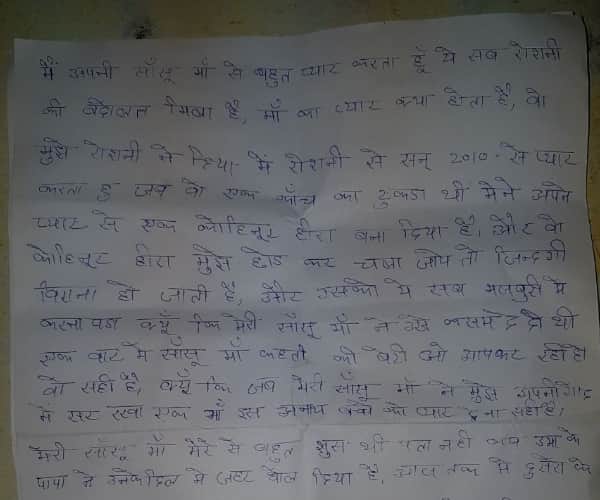 मैं अपनी साँसू माँ से बहुत प्यार करता हूँ ये सब रोशनी
की बदौलत मिला है, माँ का प्यार क्या होता है, वो
मुझे रोशनी ने दिया मैं रोशनी से सन् 2010 से प्यार
करता हु जब वो एक काँच का टुकडा थी मैने अपने
प्यार से एक कोहिनूर हीरा बना दिया है, और वो
कोहिनूर हीरा मुझे छोड कर चला जाये तो जिन्दगी
विराना हो जाती है, और उसको ये सब मजबुरी मे
करना पडा क्यूँ कि मेरी साँसू माँ ने उसे कसमे दे दी थी
एक बार मे साँसू माँ कहती की बेटी जो आप कर रही हो
वो सही है, क्यूँ कि जब मेरी साँसू माँ ने मुझे अपनी गोद
में सर रखा एक माँ इस अनाथ बच्चे को प्यार देना सही है।
मेरी साँसू माँ मेरे से बहुत खुस थी पता नही अब उमा के
पापा ने उनके दिल मे जहर घोल दिया है, आज तक मे दुसरो के